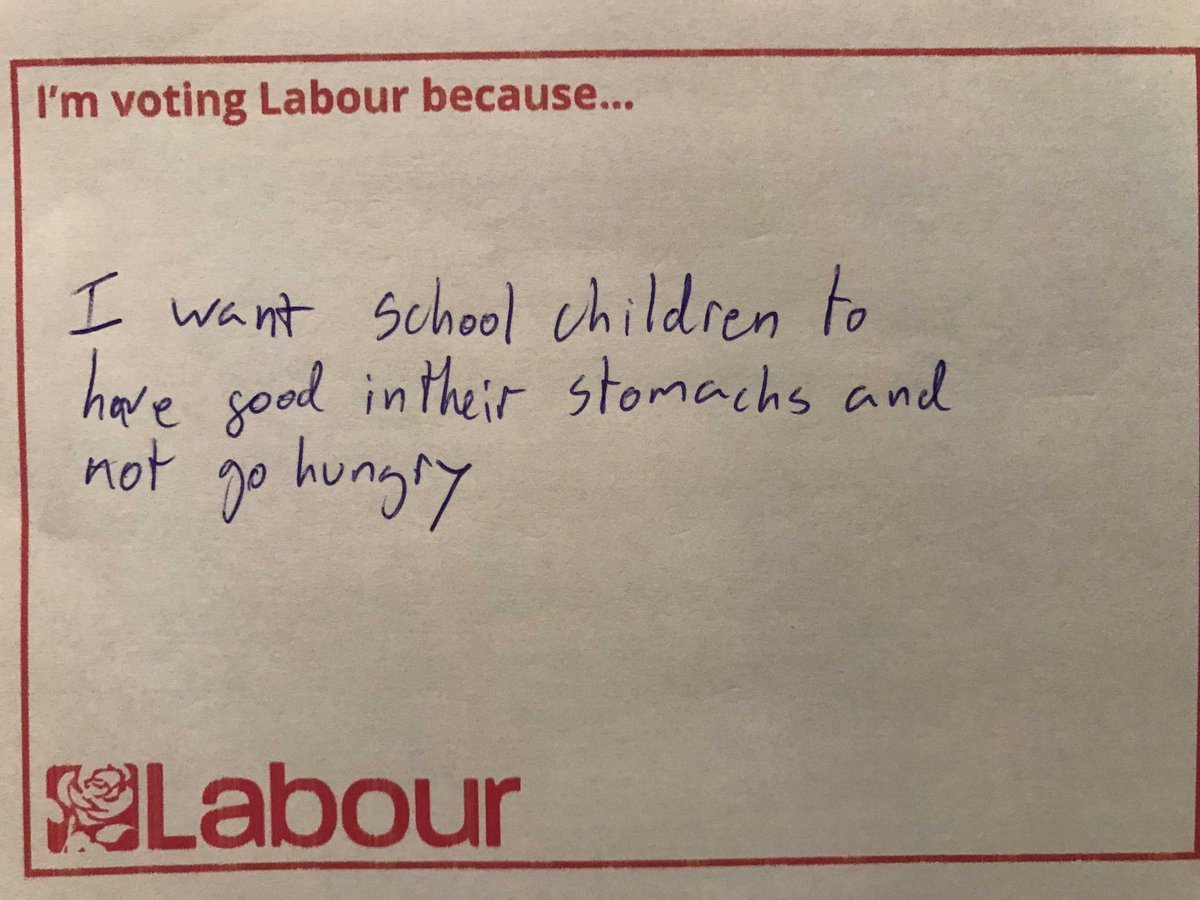 I'm voting Labour because...
I want school children to
have good in their stomachs and
not go hungry
Labour